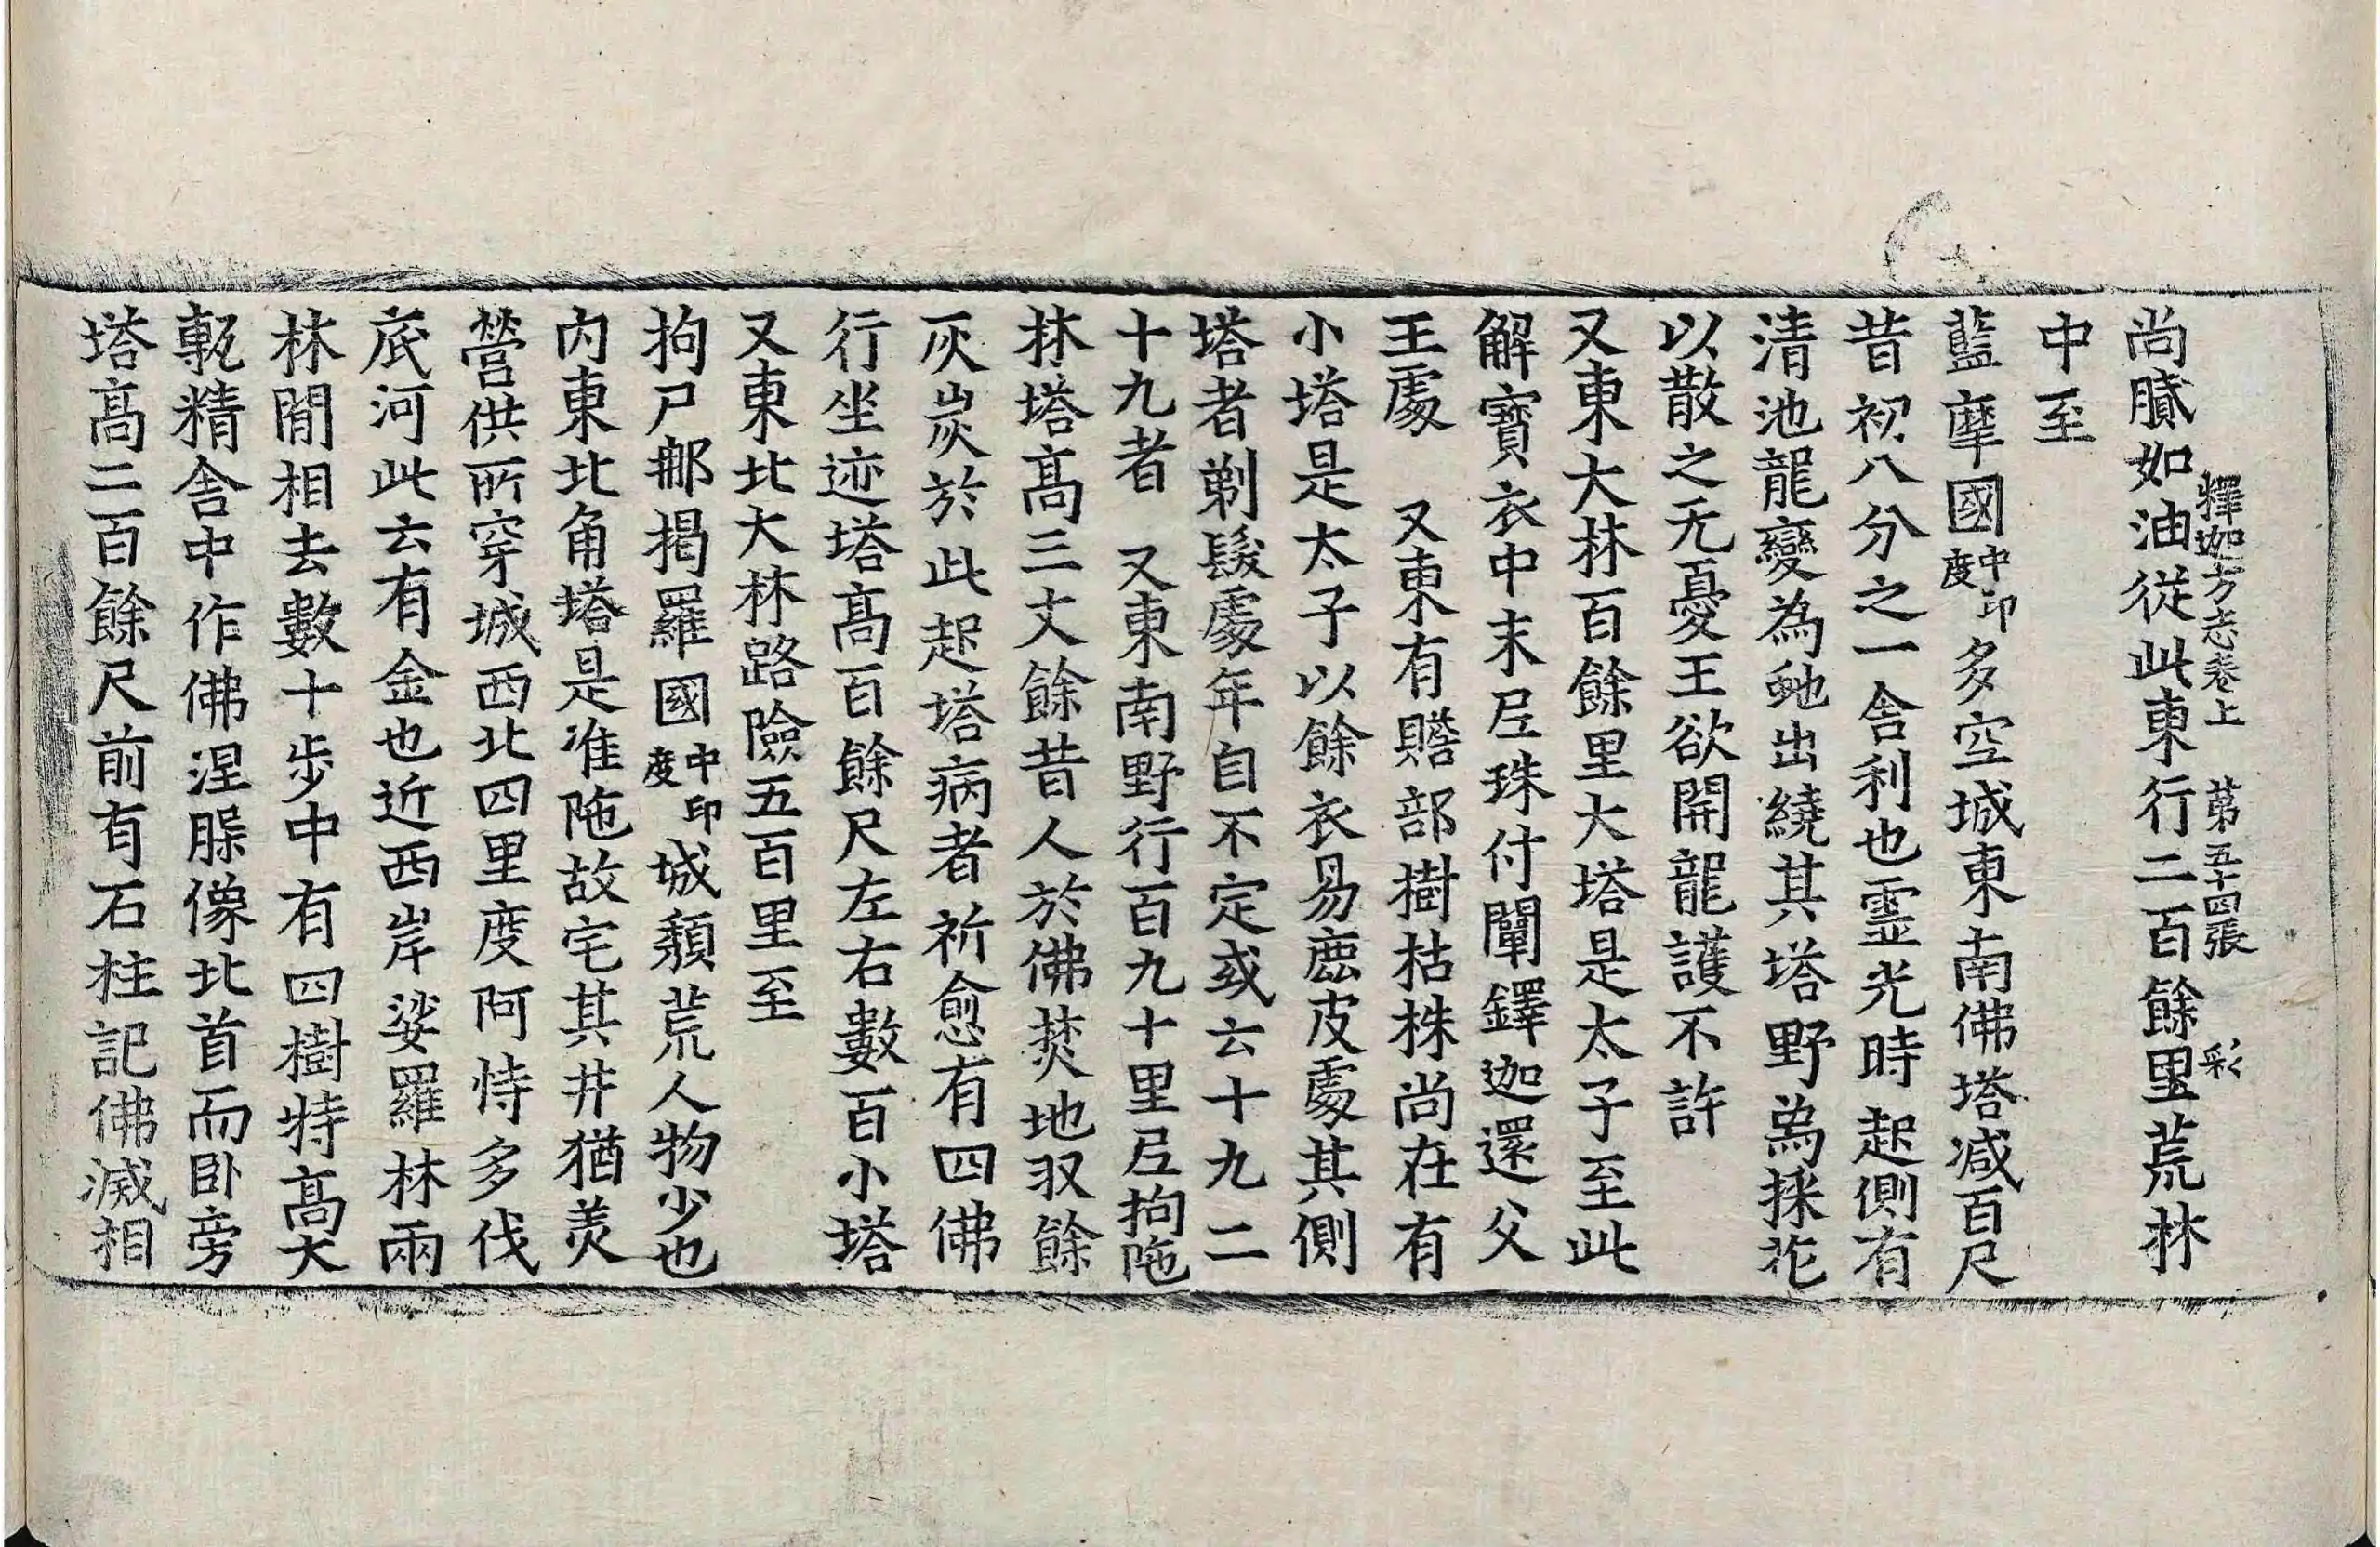 釋迦方志卷上 第五十四張 彩
尚膩如油從此東行二百餘里荒林
中至
藍摩國中印度多空城東南佛塔減百尺
昔初八分之一舍利也靈光時起側有
清池龍變為虵出繞其塔野象採花
以散之无憂王欲開龍護不許
又東大林百餘里大塔是太子至此
解寶衣中末尼珠付闡鐸迦還父
王處 又東有贍部樹枯株尚在有
小塔是太子以餘衣易鹿皮處其側
塔者剃髮處年自不定或云十九二
十九者 又東南野行百九十里尼拘陁
林塔高三丈餘昔人於佛焚地収餘
灰炭於此起塔病者祈愈有四佛
行坐迹塔高百餘尺左右數百小塔
又東北大林路險五百里至
拘尸那揭羅國中印度城頹荒人物少也
內東北角塔是准陁故宅其井猶美
營供所穿城西北四里度阿恃多伐
底河此云有金也近西岸娑羅林兩
林間相去數十步中有四樹特高大
甎精舍中作佛涅槃像北首而臥旁
塔高二百餘尺前有石柱記佛滅相